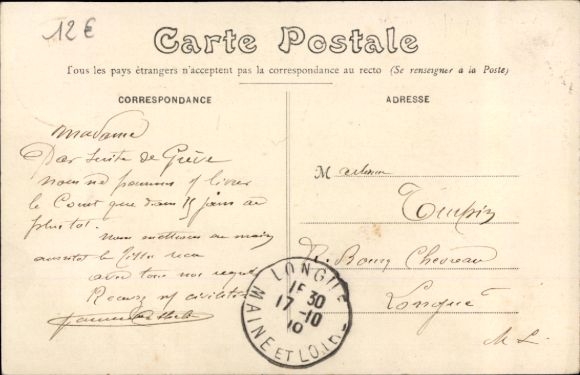 12€
Carte Postale
Tous les pays étrangers n'acceptent pas la correspondance au recto (Se renseigner à la Poste)
CORRESPONDANCE
ADRESSE
Madame
Par suite de Grève
nous ne pouvons y livrer
le que dans 15 jours au
plus tot.
Nous mettrons en main
aussitot le reçu
avec tous nos
Recevez civilités
M
R. Bourg Chevreau
Longué
M L.
LONGUÉ
15 30
17-10
10
MAINE ET LOIRE